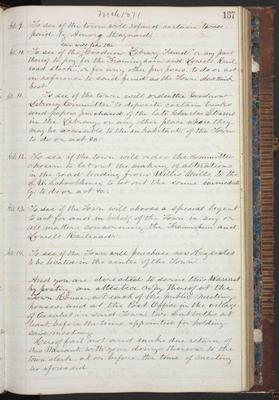 137
Art. 9. To see if the town will refund certain taxes
paid by Amory Maynard.
Art. 10. To see if the town will sell the
"Goodnow Library Fund" or any part
thereof to pay for the Framingham and Lowell Rail
road stock, or for any other purpose, to do or act
in reference to said fund as the Town
Art. 11. To see if the town will order the Goodnow
Library Committee to deposite certain books
and papers purchased of the late Charles
in the Library or any other place where they
may be accessible to the inhabitants of the Town
to do or act &c.
Art. 12. To see if the town will order the committee
chosen to let out the making of alterations
in the road leading from Willis Mills to the
to let out the same immediate
ly, to do or act &c.
Art. 13. To see if the Town will choose a special Agent
to act for and in behalf of the Town in any or
all matters concerning the Framingham and
Lowell Railroad.
Art. 14. To see if the Town will purchase Hay Scales
to be located in the centre of the Town.
And you are directed to serve this Warrant
by posting an attested copy thereof at the
Town House, at each of the public meeting
houses and at the Post Office in the village
of in said Town two Sabbaths at
least before the time appointed for holding
said meeting.
Hereof fail not and make due return of
this Warrant with your doings thereon to the
town clerk at or before the time of meeting
as aforesaid.